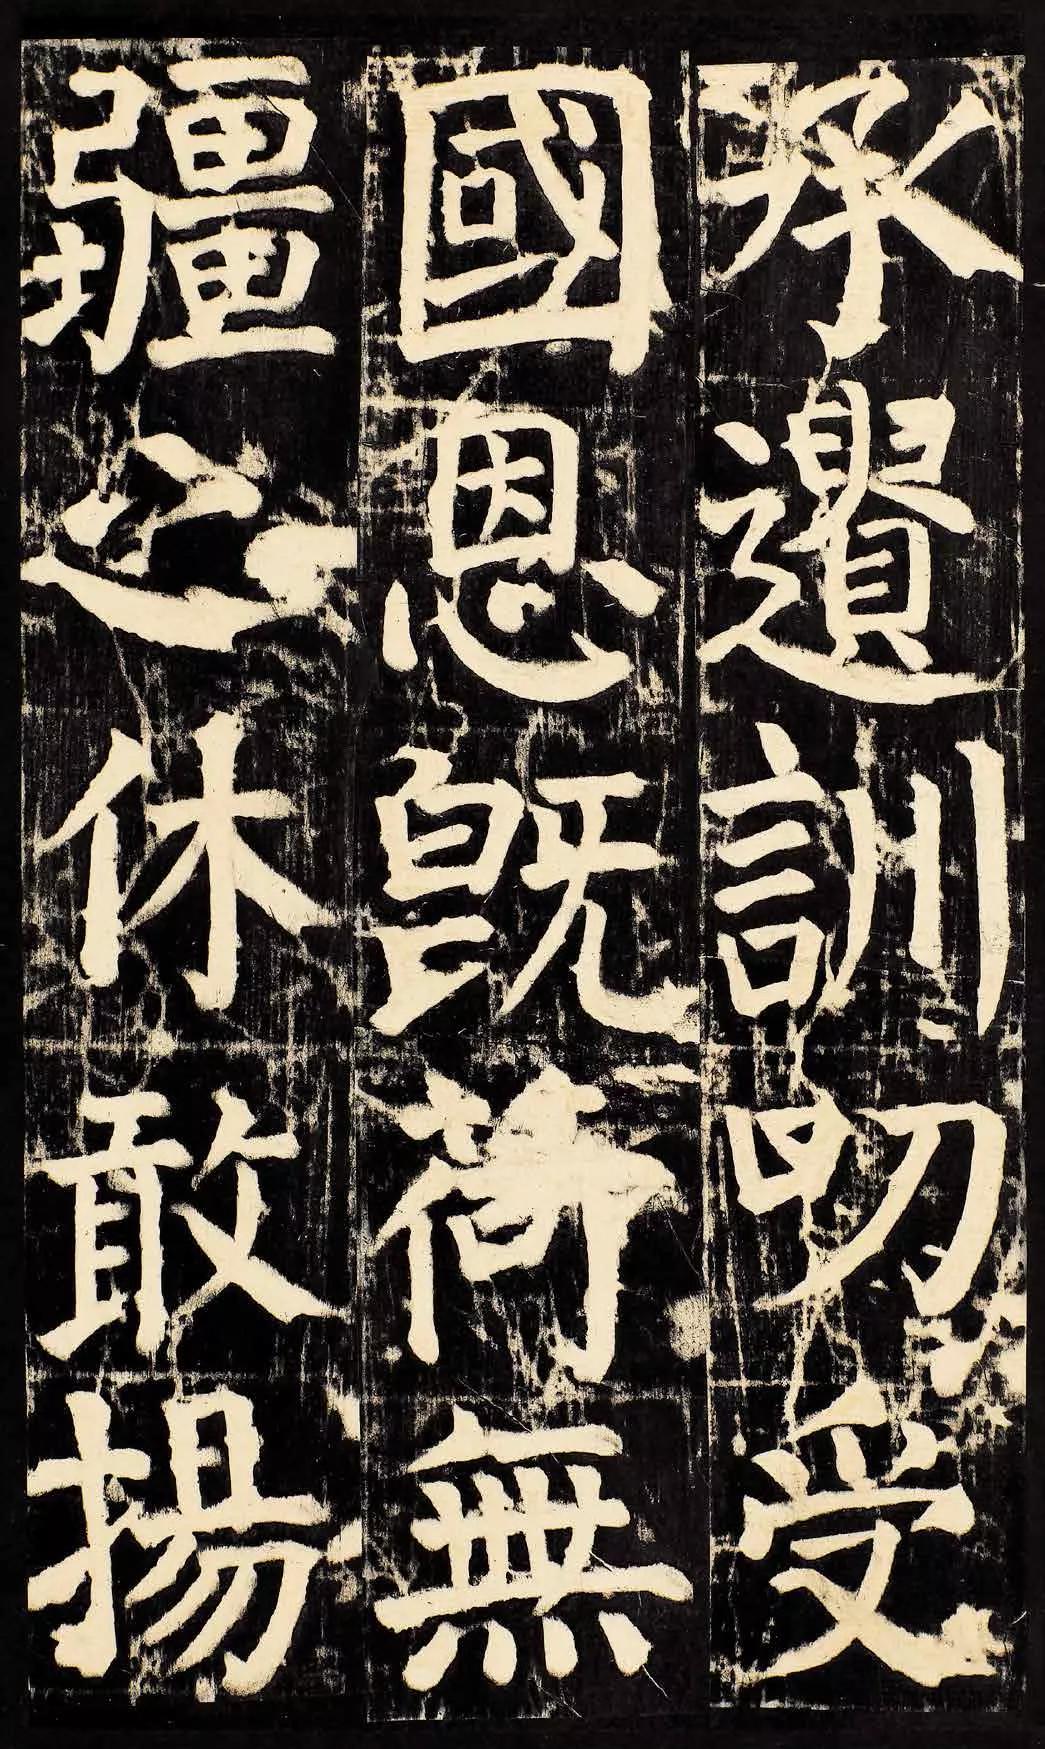 承遺訓叨受
國恩既荷無
疆之休敢揚